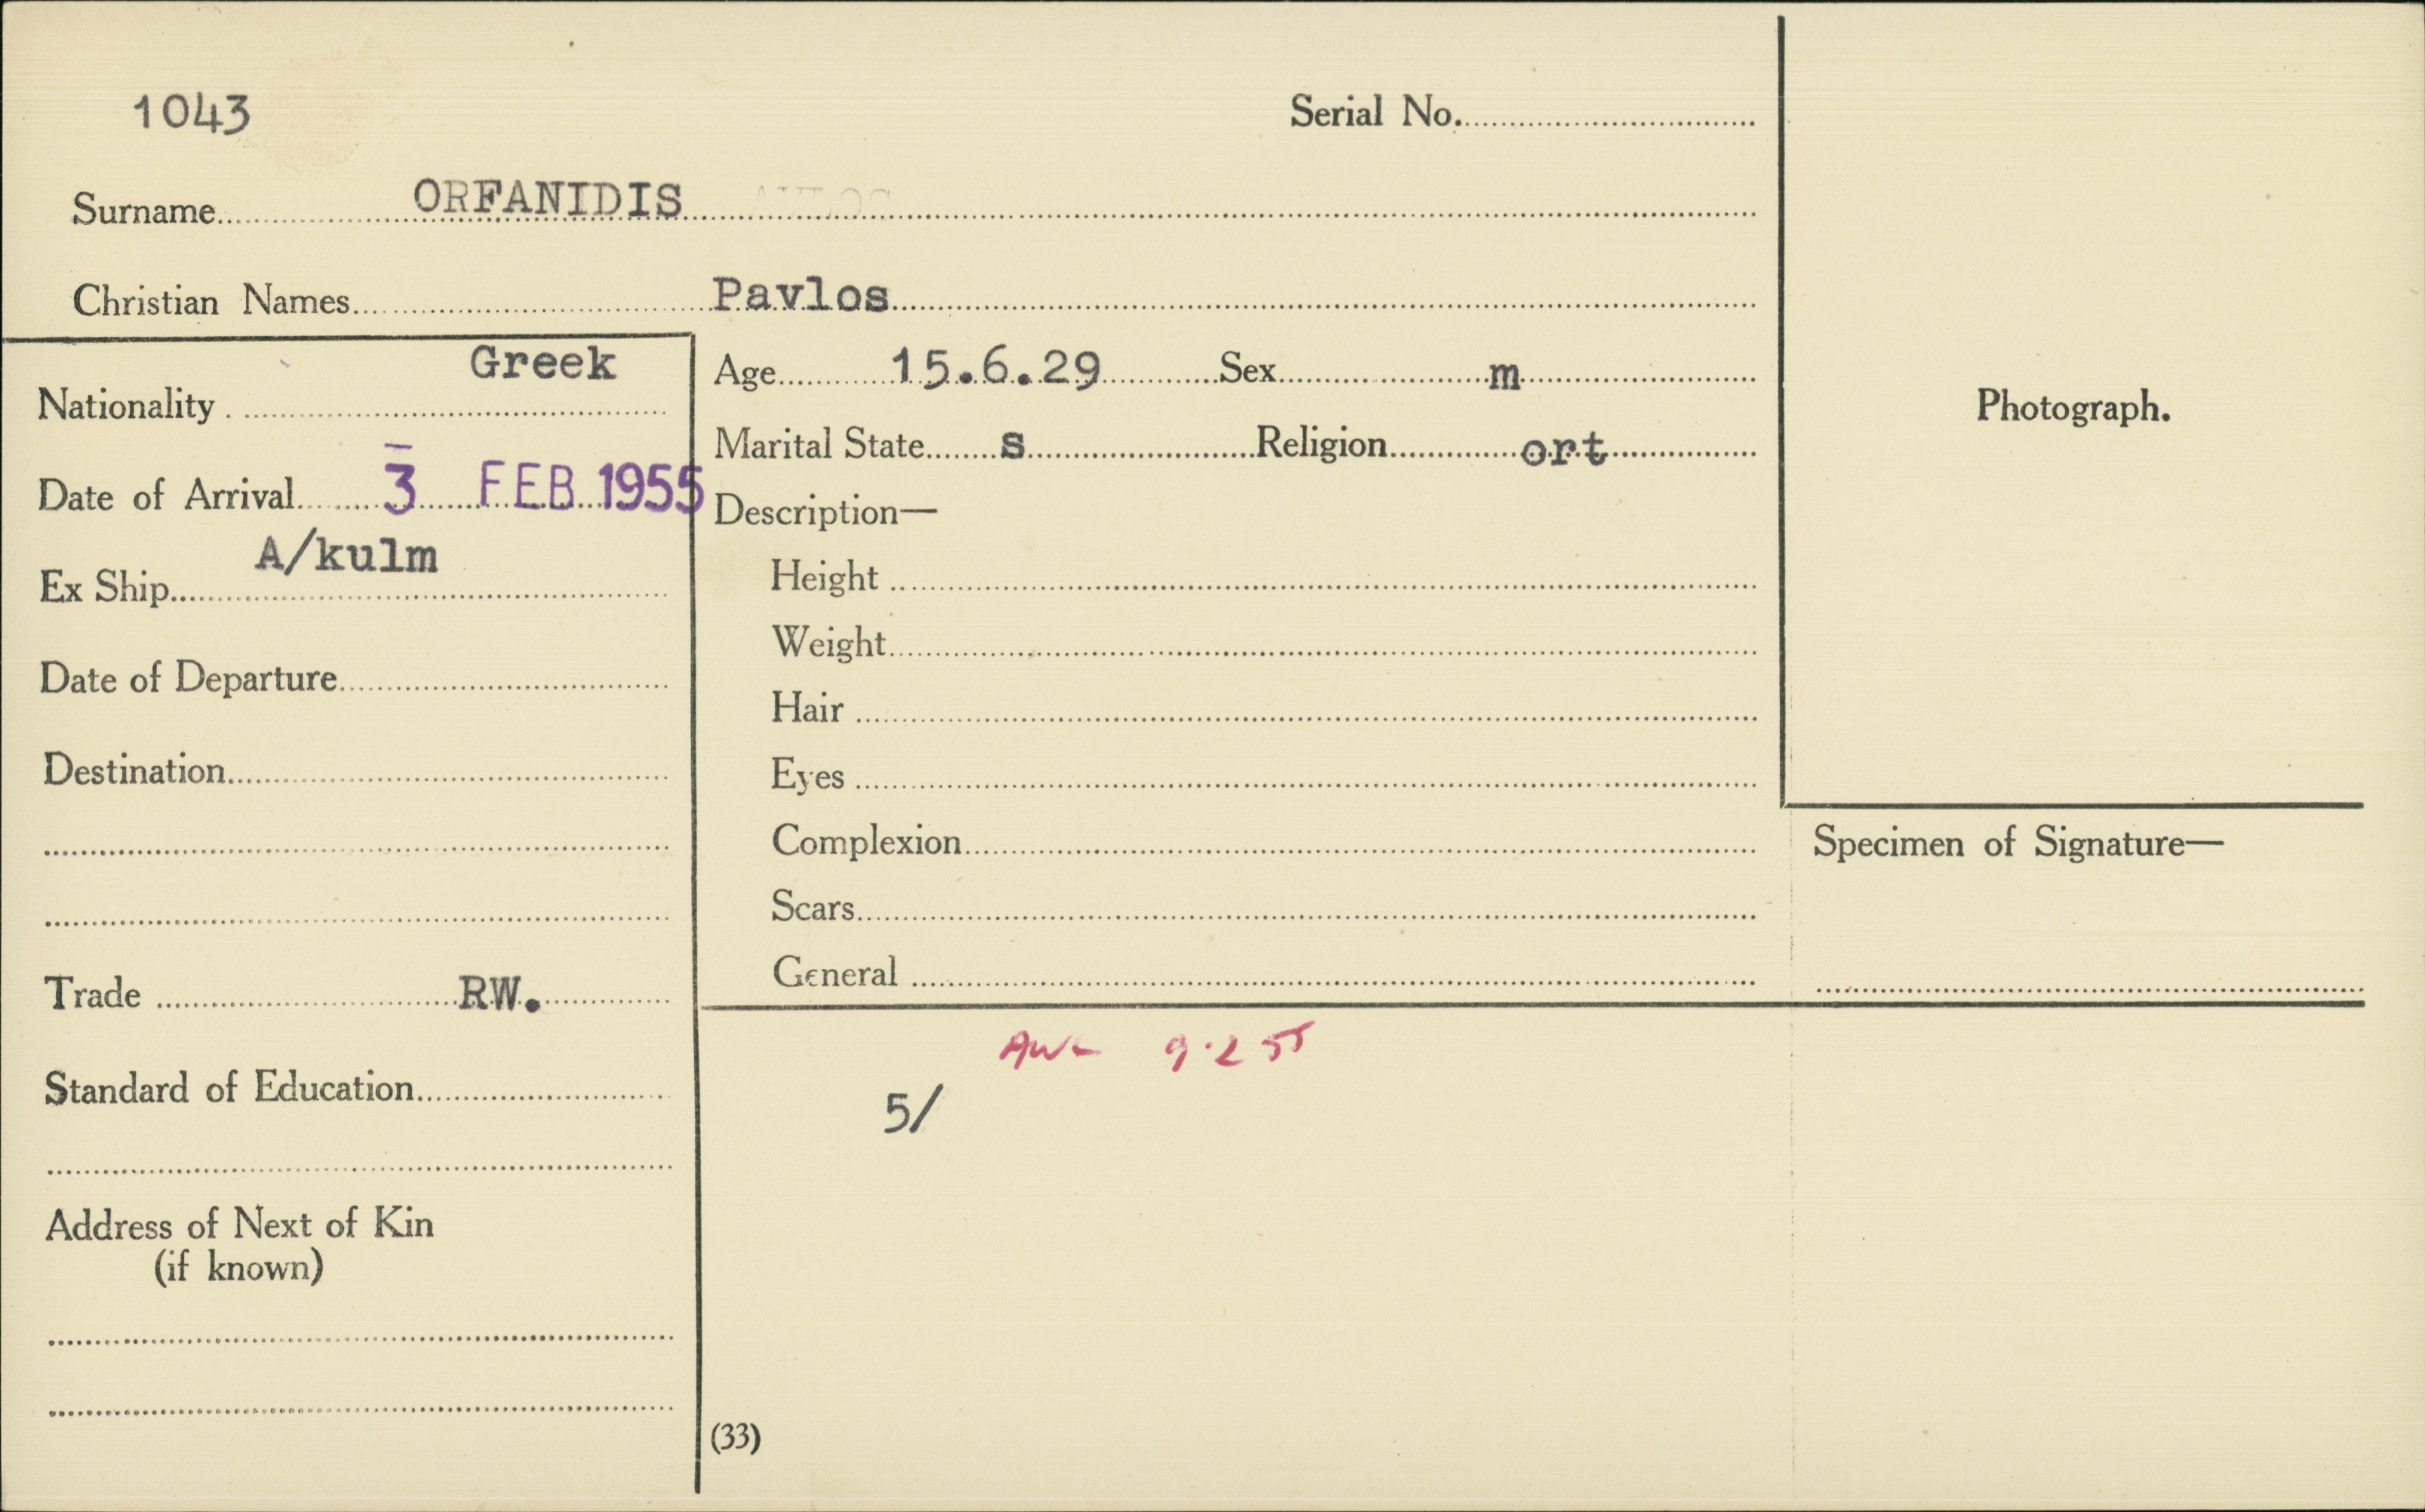 1043
Serial No.
Surname ORFANIDIS
Christian Names Pavlos
Nationality Greek
Date of Arrival 3 FEB 1955
Ex Ship A/kulm
Date of Departure
Destination
Trade RW.
Standard of Education
Address of Next of Kin
(if known)
Age 15.6.29 Sex m
Marital State s Religion ort
Description—
Height
Weight
Hair
Eyes
Complexion
Scars
General
Photograph.
Specimen of Signature—
9.2 55
5/
(33)